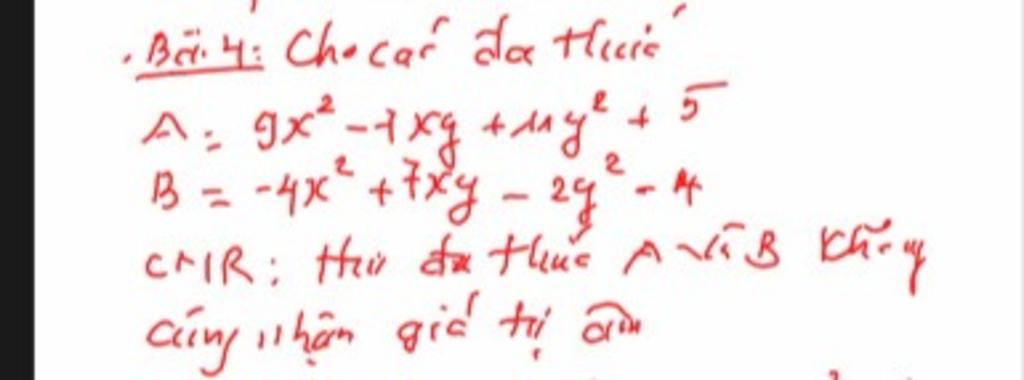 . Bài 4: Cho các đa thức
A = 9x² - 7xy + 11y² + 5
B = -4x² + 7xy - 2y² - 4
CMR: thì đa thức A và B không
cùng nhận giá trị âm